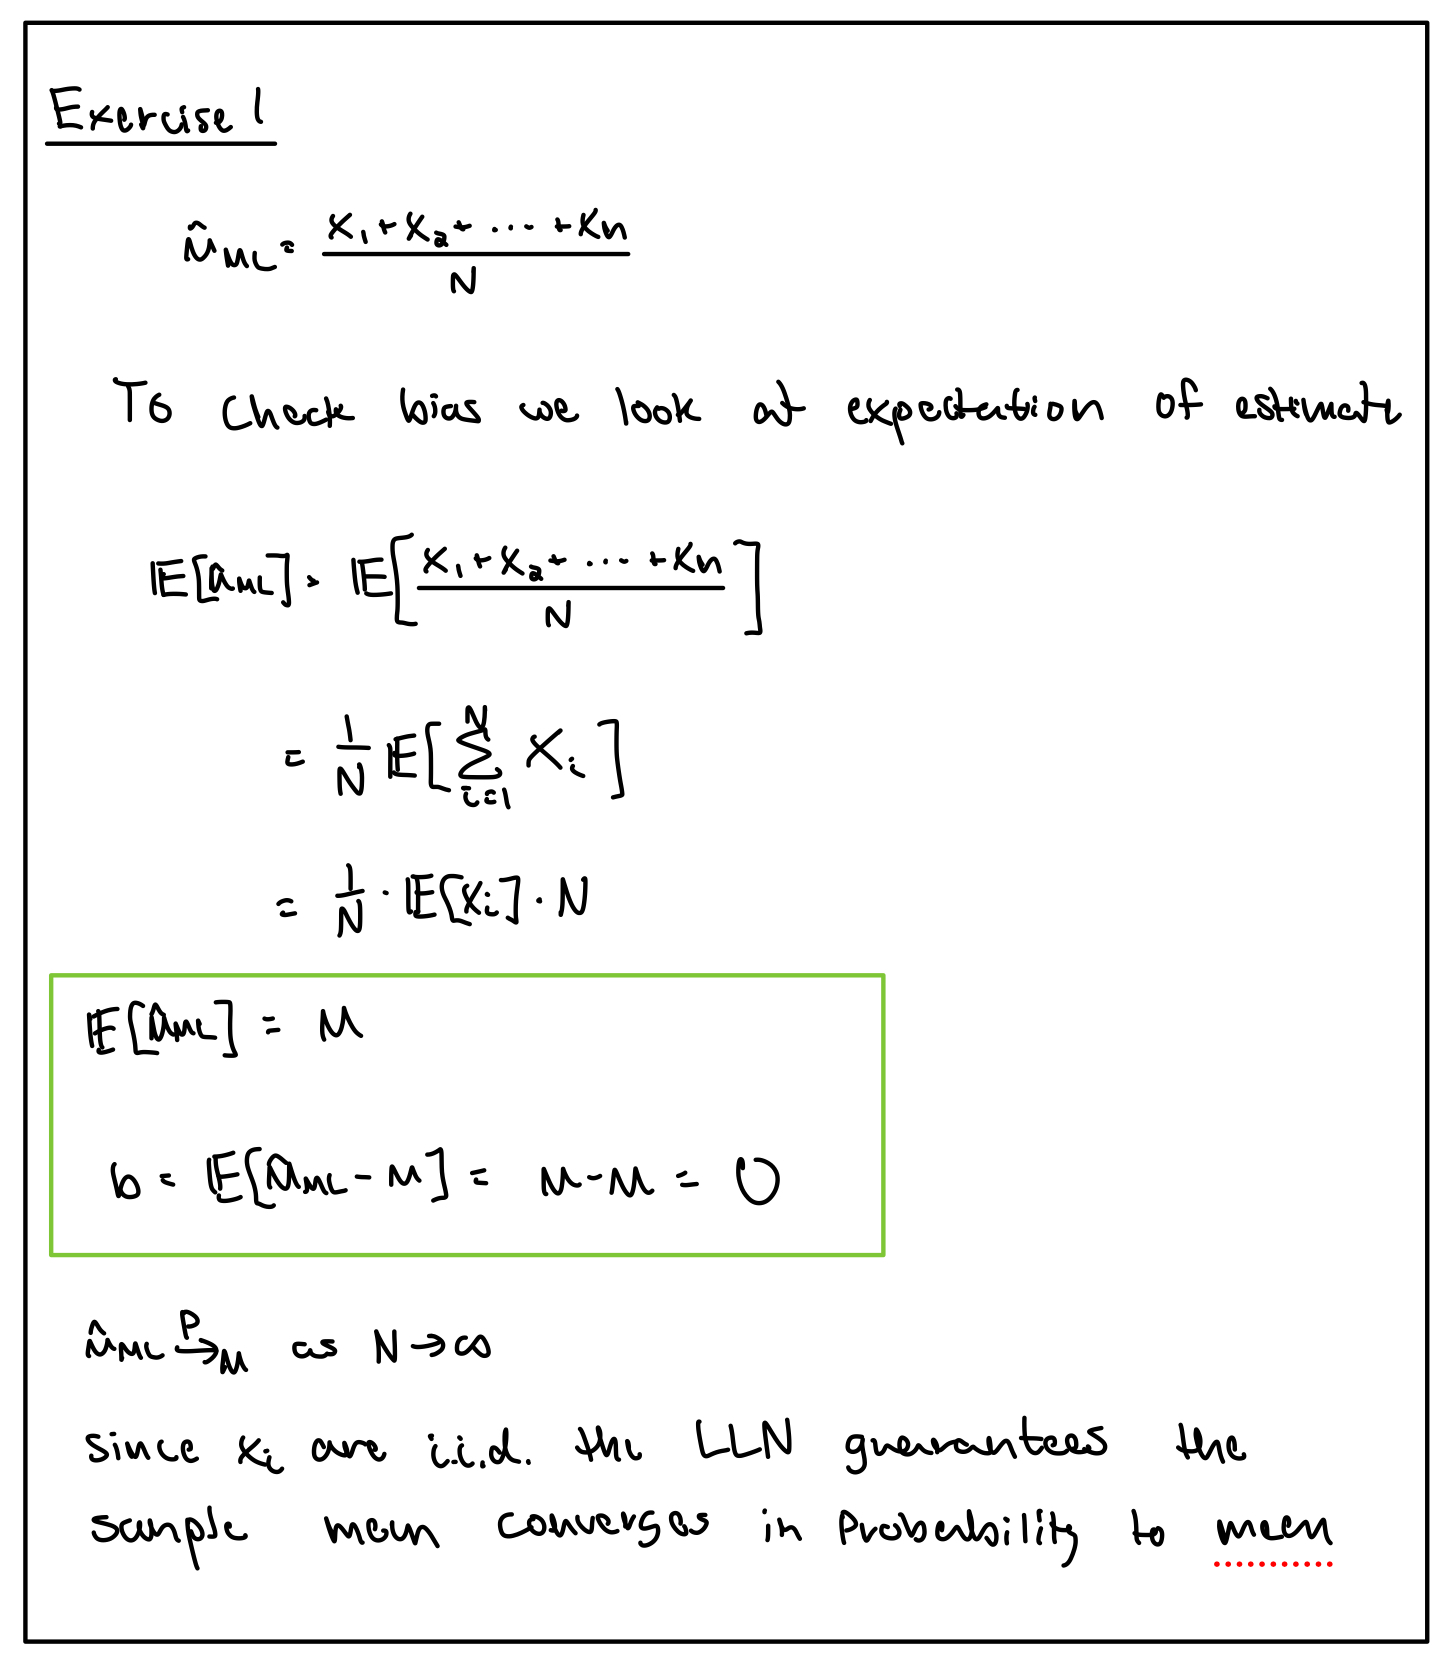 Exercise 1
μ̂_ML = (X₁ + X₂ + ... + Xₙ) / N
To check bias we look at expectation of estimate
𝔼[μ̂_ML] = 𝔼[(X₁ + X₂ + ... + Xₙ) / N]
= 1/N 𝔼[∑_{i=1}^{N} X_i]
= 1/N · 𝔼[X_i] · N
𝔼[μ̂_ML] = μ
b = 𝔼[μ̂_ML - μ] = μ - μ = 0
μ̂_ML →^P μ as N → ∞
since X_i are i.i.d. the LLN guarantees the
sample mean converges in probability to mean